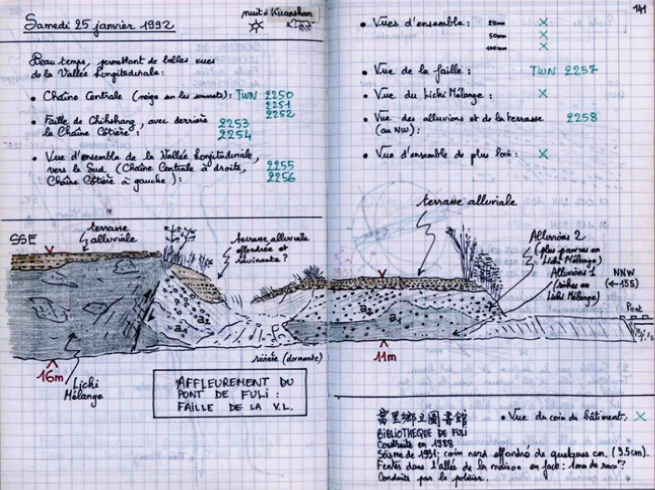 Samedi 25 janvier 1992
nuit à Kuanshan
Beau temps, permettant de belles vues
de la Vallée Longitudinale :
• Chaîne Centrale (neige sur les sommets) : TWN 2250
2251
2252
• Faille de Chihshang, avec derrière 2253
la Chaîne Côtière : 2254
• Vue d'ensemble de la Vallée Longitudinale,
vers le Sud (Chaîne Centrale à droite, 2255
Chaîne Côtière à gauche) : 2256
SSE
terrasse
alluviale
terrasse alluviale
effondrée et
ravinante ?
a2
a1
16m
Lichi
Mélange
rivière (dormante)
AFFLEUREMENT DU
PONT DE FULI :
FAILLE DE LA V.L.
141
• Vues d'ensemble : 28mm X
50mm X
100mm X
• Vue de la faille : TWN 2257
• Vue du Lichi Mélange : X
• Vue des alluvions et de la terrasse 2258
(au NW) :
• Vue d'ensemble de plus loin : X
terrasse alluviale
Alluvions 2
(plus pauvres en
Lichi Mélange)
Alluvions 1
(riches en
Lichi Mélange)
NNW
(←155)
Pont
a2
a1
11m
富里鄉立圖書館
BIBLIOTHEQUE DE FULI
Construite en 1988
Séisme de 1991 : coin nord effondré de quelques cm (3.5cm).
Fentes dans l'allée de la maison en fact :
Conduits par le policier.
• Vue du coin du bâtiment : X